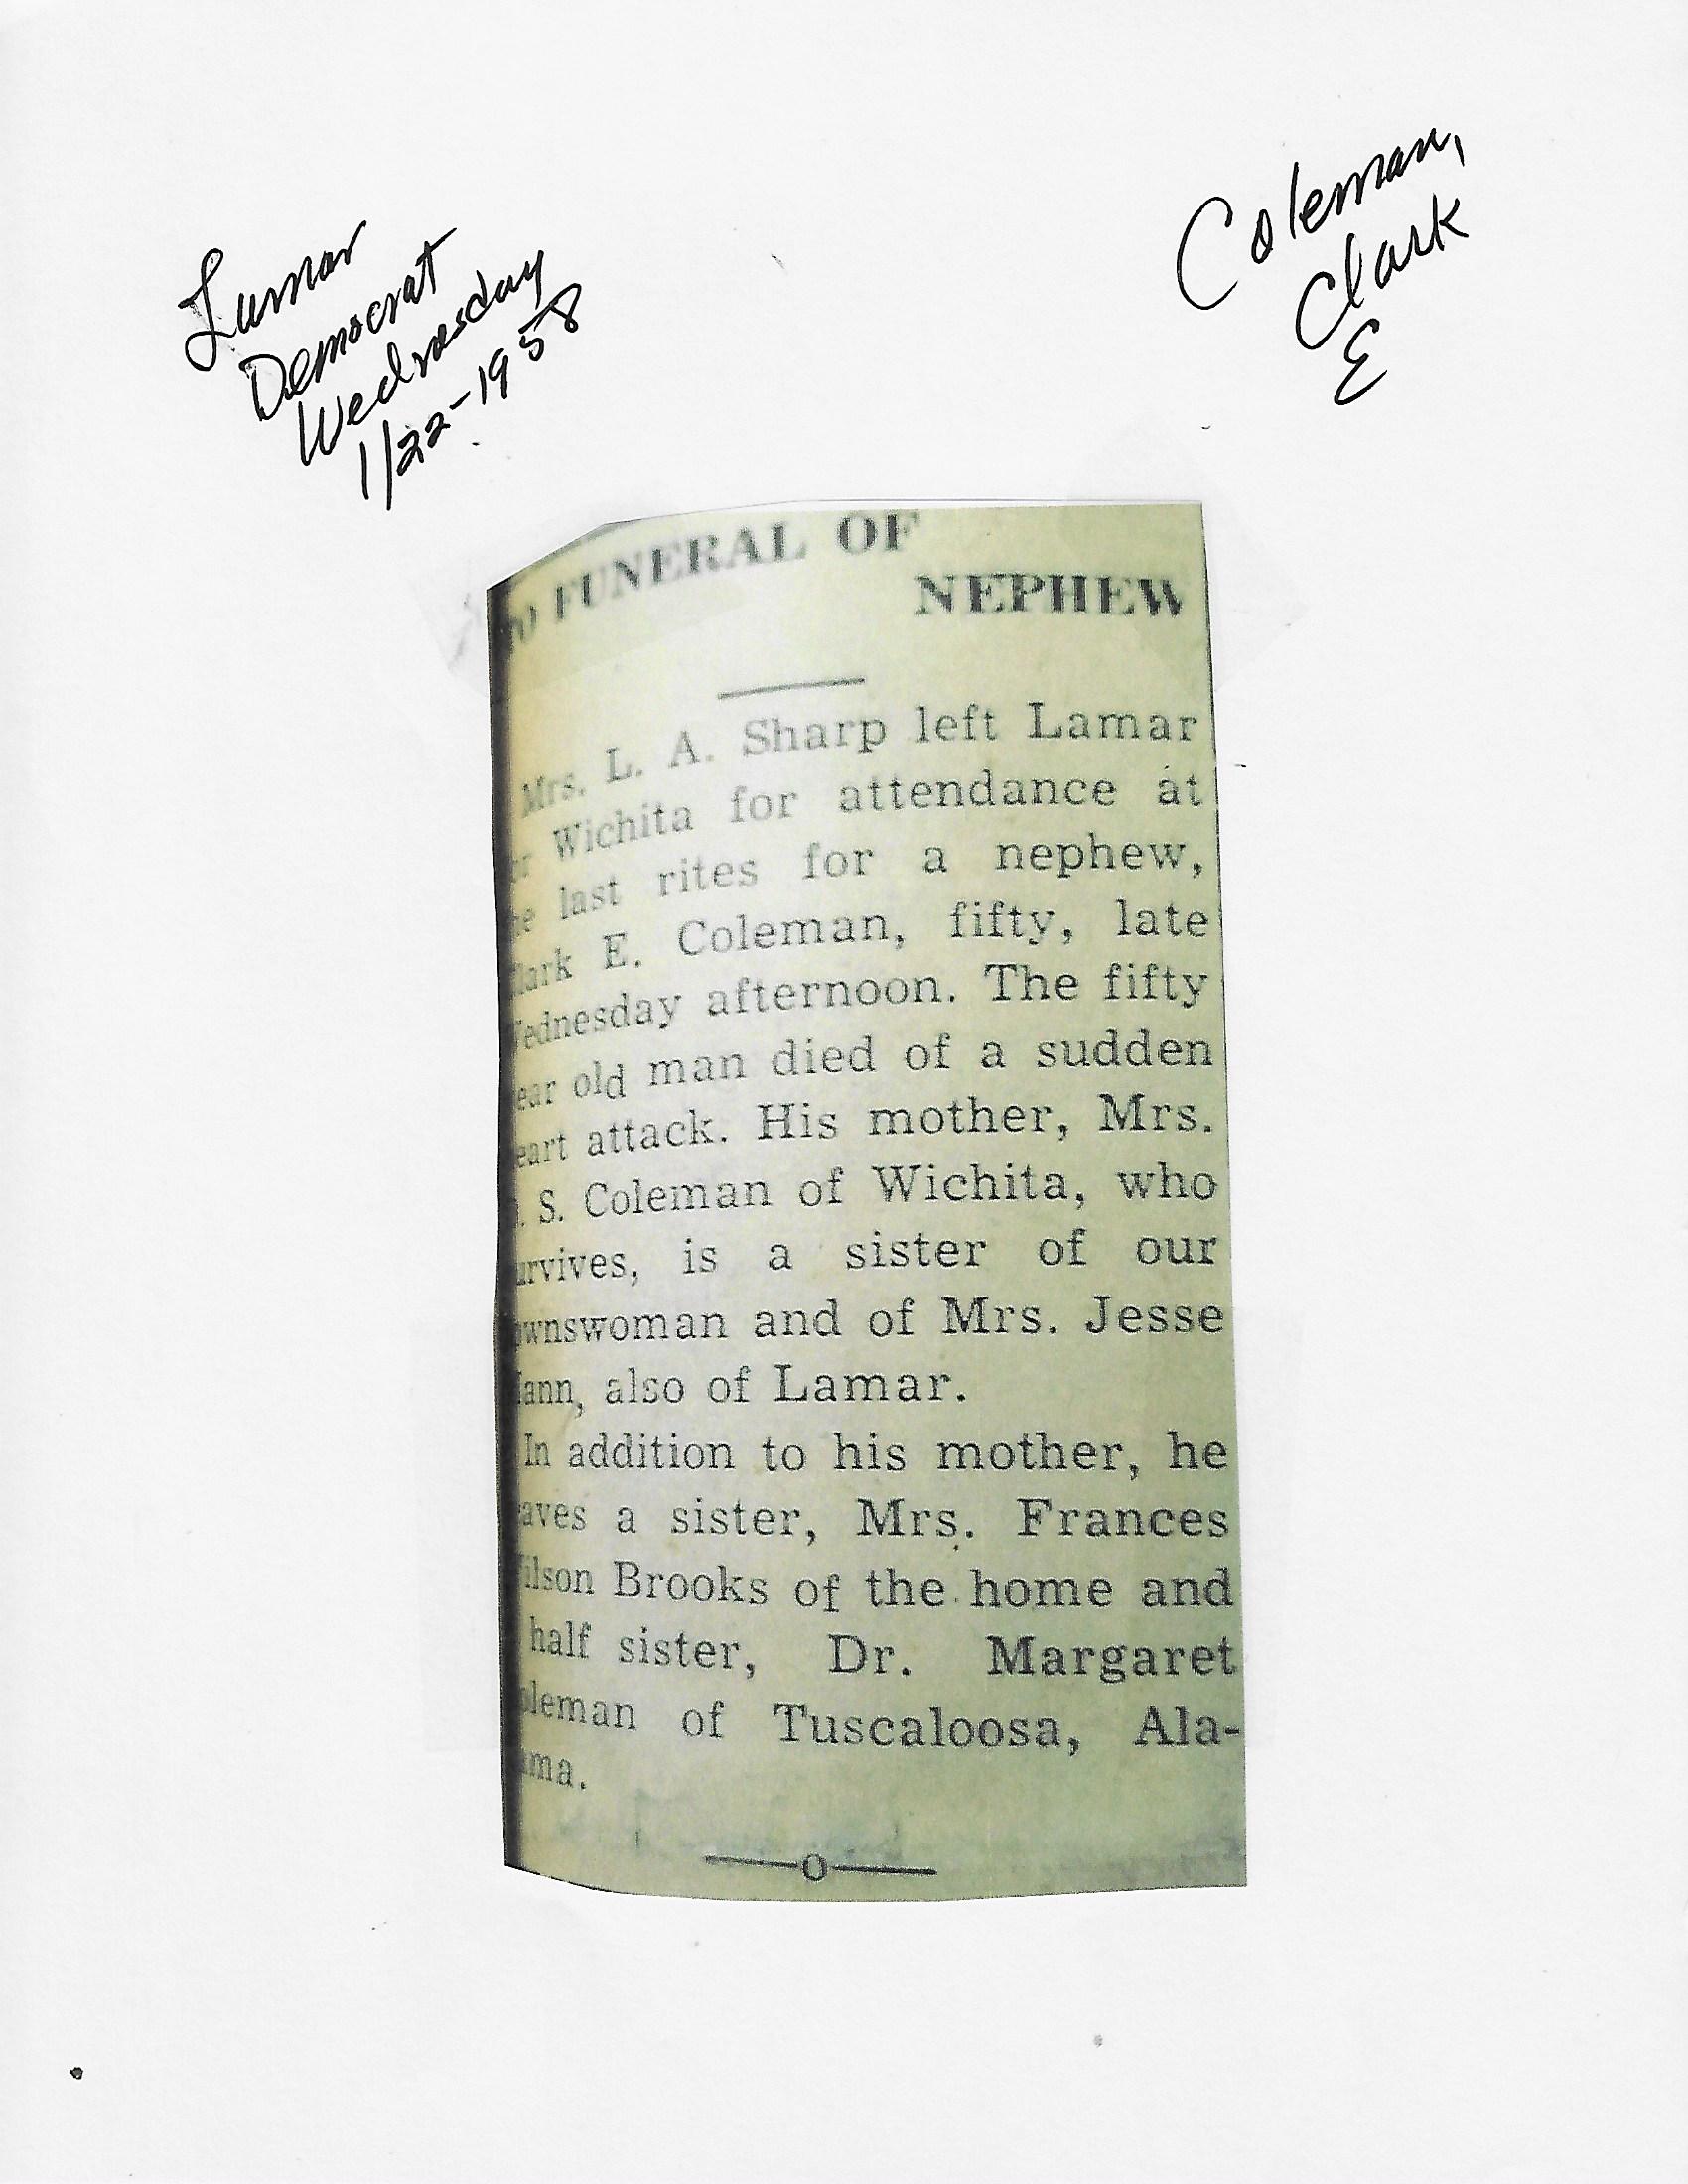 Lamar
Democrat
Wednesday
1/22-1958
Coleman,
Clark
E
FUNERAL OF
NEPHEW
Mrs. L. A. Sharp left Lamar
Wichita for attendance at
last rites for a nephew,
lark E. Coleman, fifty, late
ednesday afternoon. The fifty
ear old man died of a sudden
eart attack. His mother, Mrs.
. S. Coleman of Wichita, who
urvives, is a sister of our
ownswoman and of Mrs. Jesse
ann, also of Lamar.
In addition to his mother, he
aves a sister, Mrs. Frances
ilson Brooks of the home and
half sister, Dr. Margaret
oleman of Tuscaloosa, Ala-
ama.